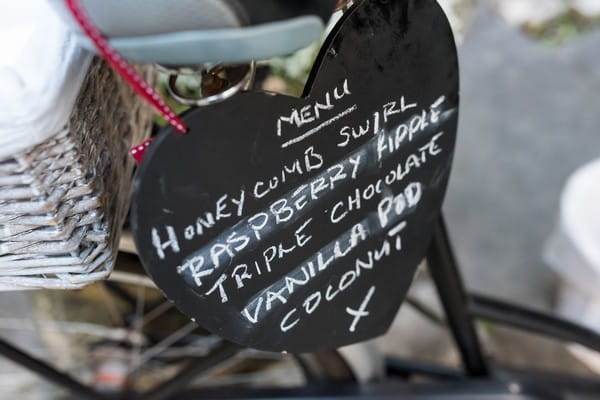 MENU
HONEYCOMB SWIRL
RASPBERRY RIPPLE
TRIPLE CHOCOLATE
VANILLA POD
COCONUT
X